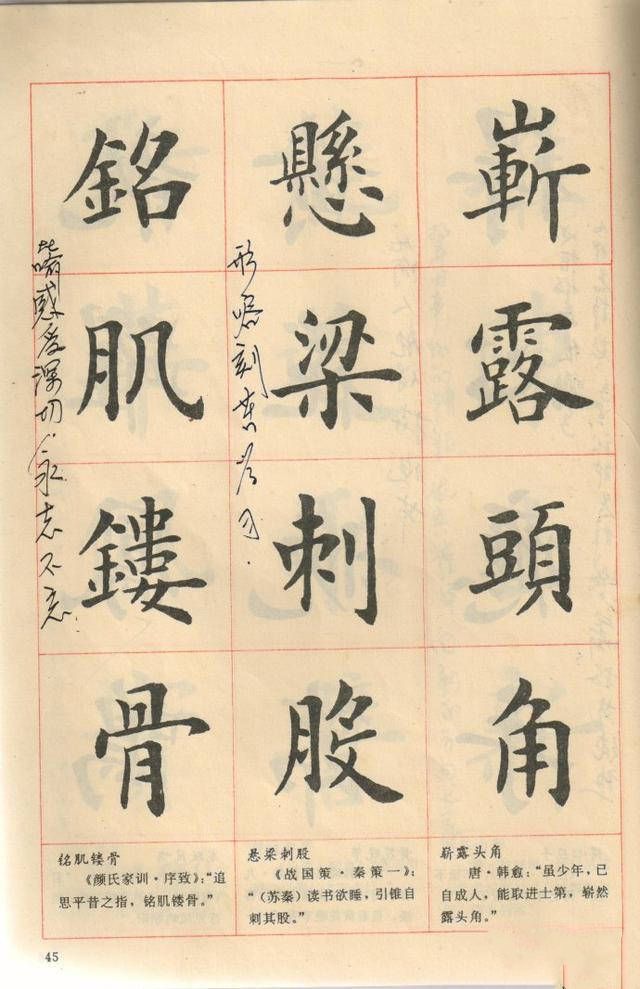 嶄露頭角
懸梁刺股
形容刻苦学习.
銘肌鏤骨
比喻感受深切.永志不忘
崭露头角
唐·韩愈：“虽少年，已
自成人，能取进士第，崭然
露头角。”
悬梁刺股
《战国策·秦策一》：
“（苏秦）读书欲睡，引锥自
刺其股。”
铭肌镂骨
《颜氏家训·序致》：“追
思平昔之指，铭肌镂骨。”
45